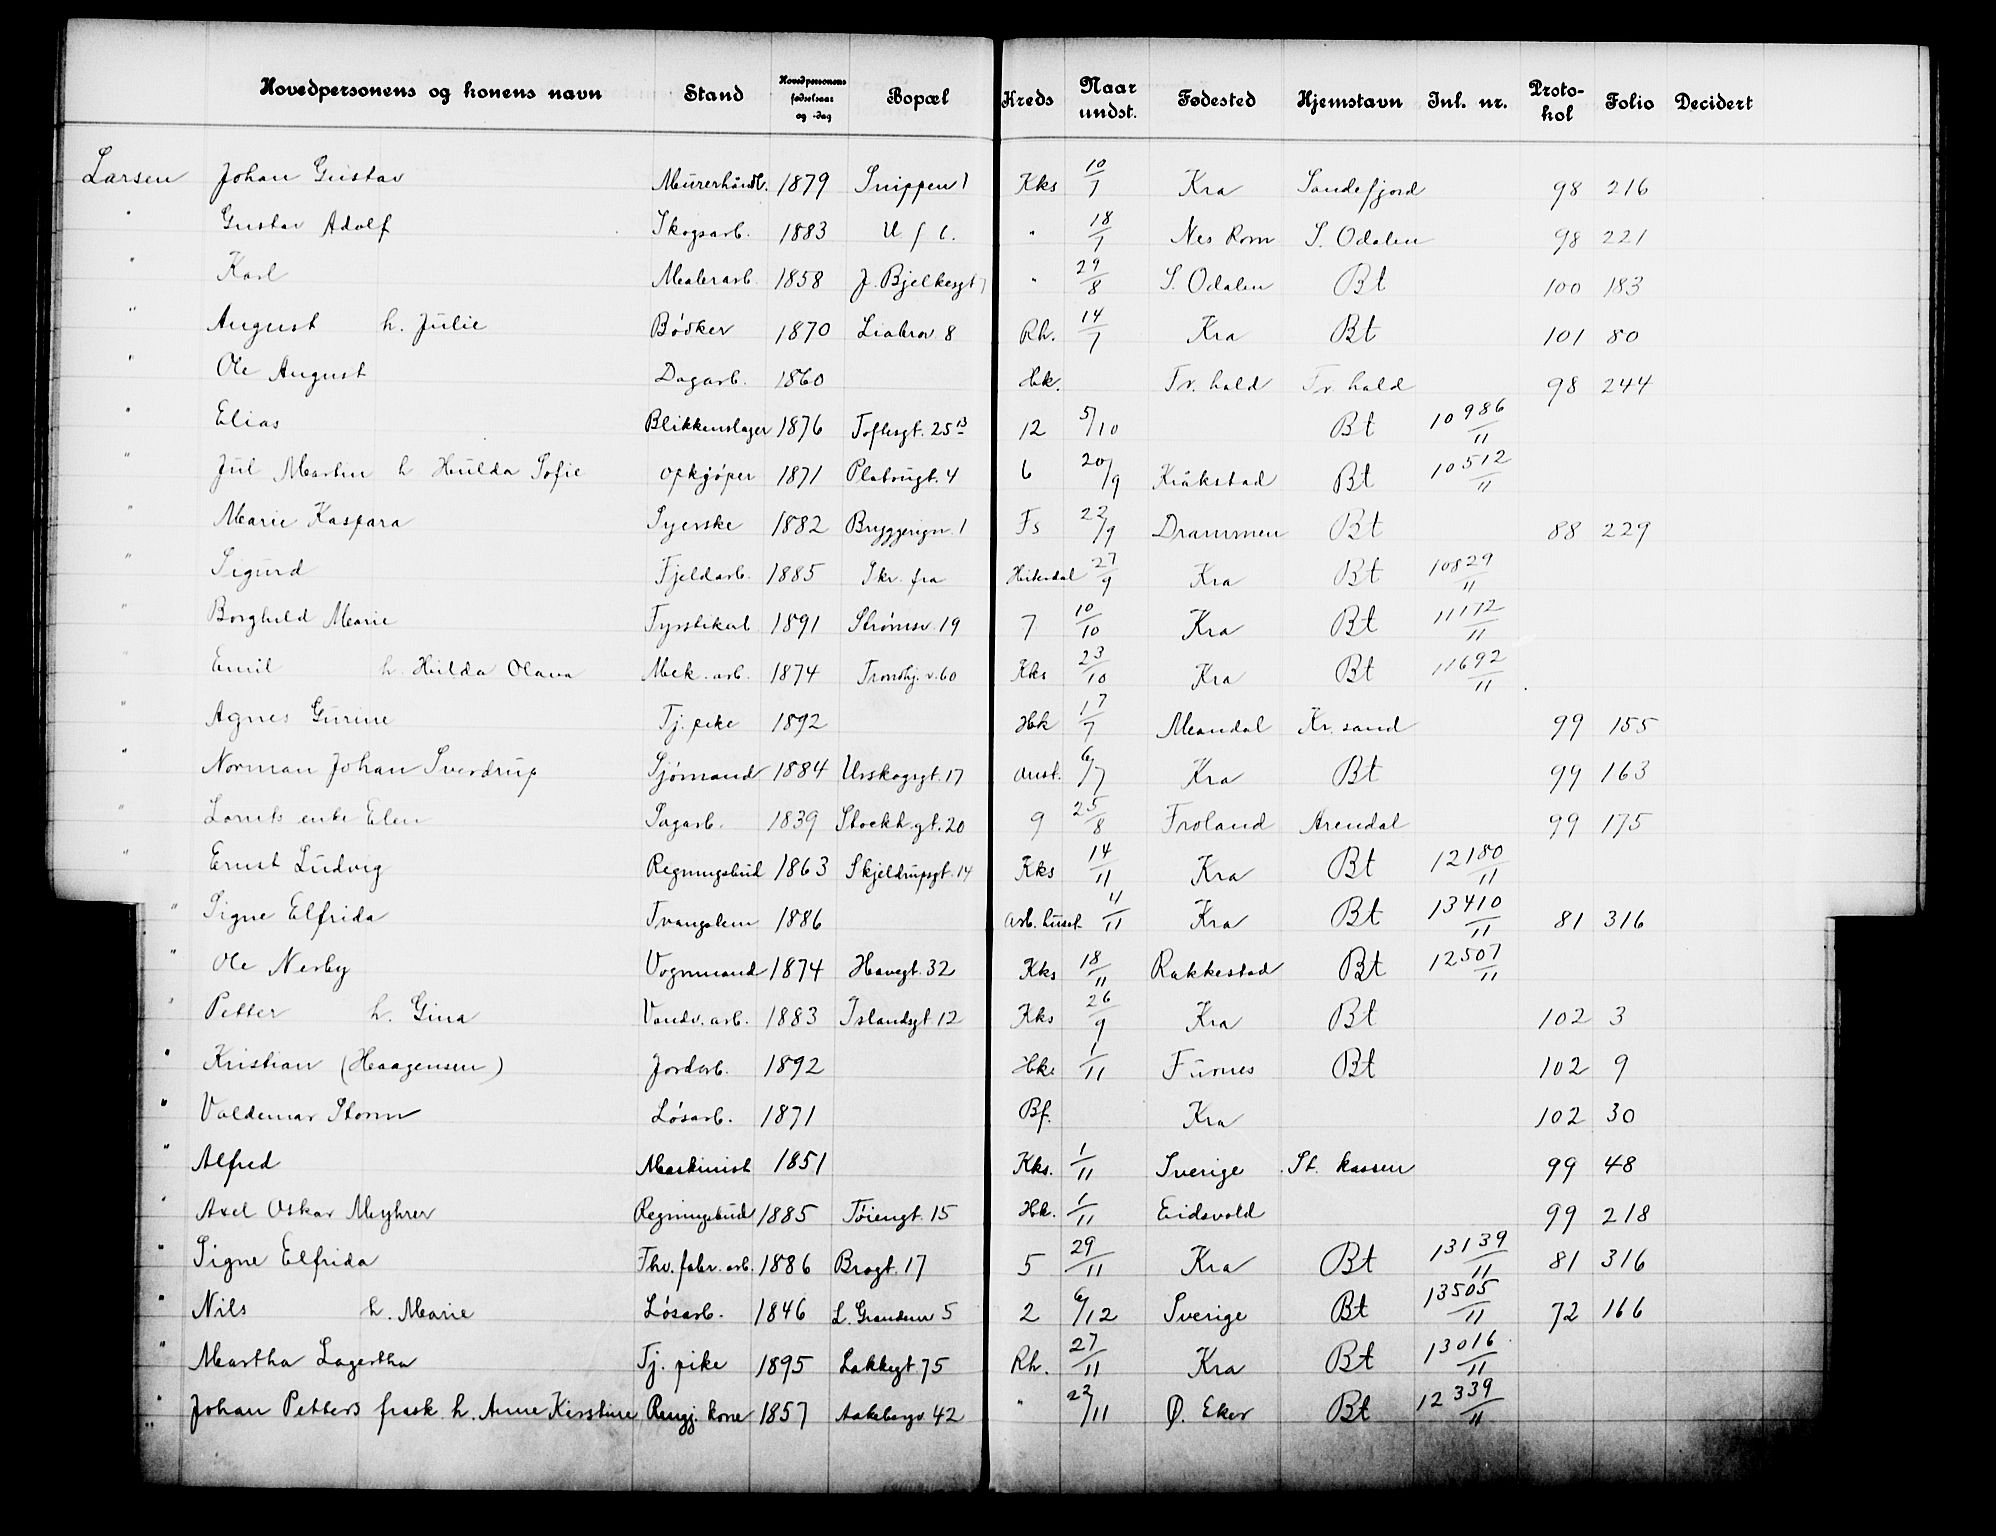 Hovedpersonens og konens navn Stand Hovedpersonens fødselsaar og -dag Bopæl Kreds Naar undst. Fødested Hjemstavn Inl. nr. Proto-kol Folio Decidert
Larsen Johan Gustav Murerhåndl. 1879 Snippen 1 Kks 10/7 Kra Sandefjord 98 216
" Gustav Adolf Skogsarb. 1883 U f b. " 18/7 Nes Rom S. Odalen 98 221
" Karl Malerarb. 1858 J. Bjelkesgt 7 " 29/8 S. Odalen Bt 100 183
" August h. Julie Bødker 1870 Liabrov 8 Rh. 14/7 Kra Bt 101 80
" Ole August Dagarb. 1860 Hk. Fr. hald Fr. hald 98 244
" Elias Blikkenslager 1876 Toftesgt. 25 B 12 5/10 Bt 10986/11
" Jul Martin h Hulda Sofie opkjøper 1871 Platougt. 4 6 20/9 Kråkstad Bt 10512/11
" Marie Kaspara Syerske 1882 Bryggerign. 1 Fs 22/9 Drammen Bt 88 229
" Sigurd Fjeldarb. 1885 Skr. fra Hitterdal 27/9 Kra Bt 10829/11
" Borghild Marie Fyrstikarb 1891 Strømsv. 19 7 10/10 Kra Bt 11172/11
" Emil h. Hilda Olava Mek. arb. 1874 Trondhj. v. 60 Kks 23/10 Kra Bt 11692/11
" Agnes Gurine Tj. pike 1892 Hk 17/7 Mandal Kr. sand 99 155
" Norman Johan Sverdrup Sjømand 1884 Urskogsgt. 17 anst. 6/7 Kra Bt 99 163
" Lorents enke Elen Sagarb. 1839 Stockh. gt. 20 9 25/8 Froland Arendal 99 175
" Ernst Ludvig Regningsbud 1863 Skjeldrupsgt. 14 Kks 14/11 Kra Bt 12180/11
" Signe Elfrida Tvangslem 1886 arb. huset 4/11 Kra Bt 13410/11 81 316
" Ole Nesby Vognmand 1874 Havegt. 32 Kks 18/11 Rakkestad Bt 12507/11
" Petter h. Gina Vandv. arb. 1883 Islandsgt 12 Kks 26/9 Kra Bt 102 3
" Kristian (Haagensen) Jordarb. 1892 Hk. 1/11 Furnes Bt 102 9
" Valdemar Storm Løsarb. 1871 Bf. Kra 102 30
" Alfred Maskinist 1851 Kks. 1/11 Sverige St. kassen 99 48
" Axel Oskar Meyhrer Regningsbud 1885 Tøiengt. 15 Hk. 1/11 Eidsvold 99 218
" Signe Elfrida Thv. fabr. arb. 1886 Brogt. 17 5 29/11 Kra Bt 13139/11 81 316
" Nils h. Marie Løsarb. 1846 L. Grændsen 5 2 6/12 Sverige Bt 13505/11 72 166
" Martha Lagertha Tj. pike 1895 Lakkegt 75 Rh. 27/11 Kra Bt 13016/11
" Johan Petters frask. h. Anne Kirstine Rengj. kone 1857 Aakebergv. 42 " 22/11 Ø. Eker Bt 12339/11